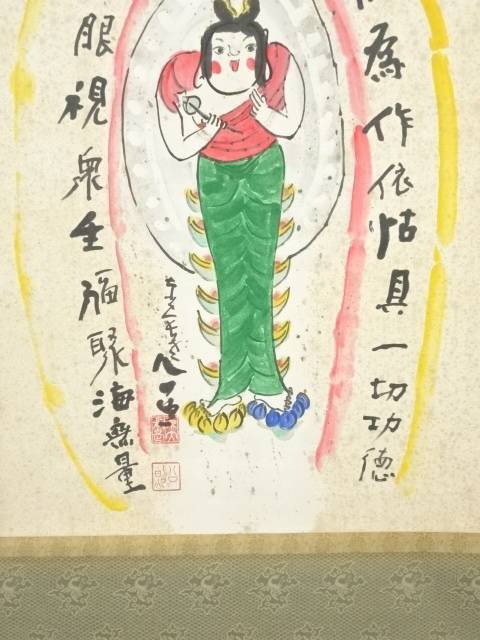 為作依怙具一切功徳
眼視衆生福聚海無量